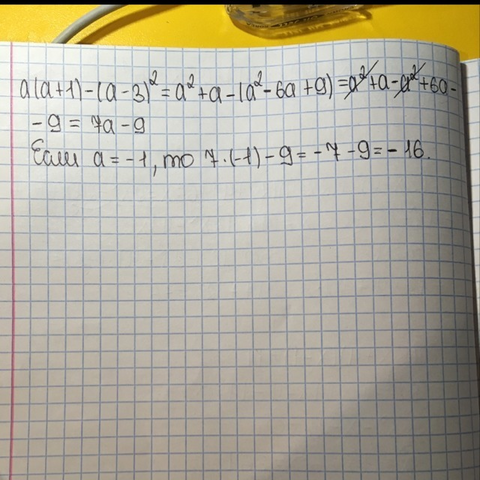 a(a+1)-(a-3)²=a²+a-(a²-6a+9)=a²+a-a²+6a-
-9=7a-9
Если a=-1, то 7·(-1)-9=-7-9=-16.